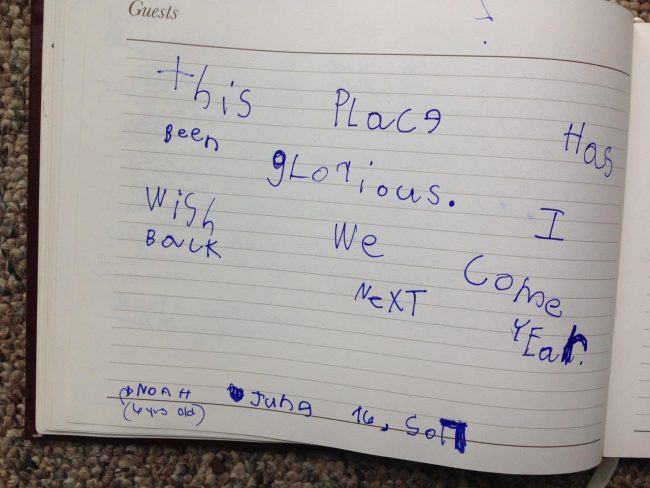 Guests
this PLace Has
Been gLorious. I
Wish We Come
BacK NeXT YEar.
NOAH June 16,
(6 yrs old)